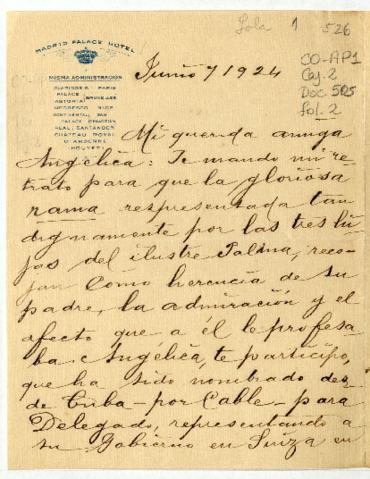 Lola 1 526
MADRID PALACE HOTEL
CO-AP1
Caj. 2
Doc. 505
fol. 2
MISMA ADMINISTRACION
PARIS
PALACE BRUXELLES
NEGRESCO NICE
REAL, SANTANDER
CHATEAU ROYAL
D'ARDENNE
HOUYET
Junio 7 1924
Mi querida amiga
Angélica: Te mando mi re-
trato para que la gloriosa
rama respresentada tan
dignamente por las tres hi-
jas del ilustre Palma, reco-
jan como herencia de su
padre, la admiración y el
afecto que a él le profesa-
ba. Angélica, te participo,
que ha sido nombrado des-
de Cuba - por Cable - para
Delegado, representando a
su Gobierno en Suiza en